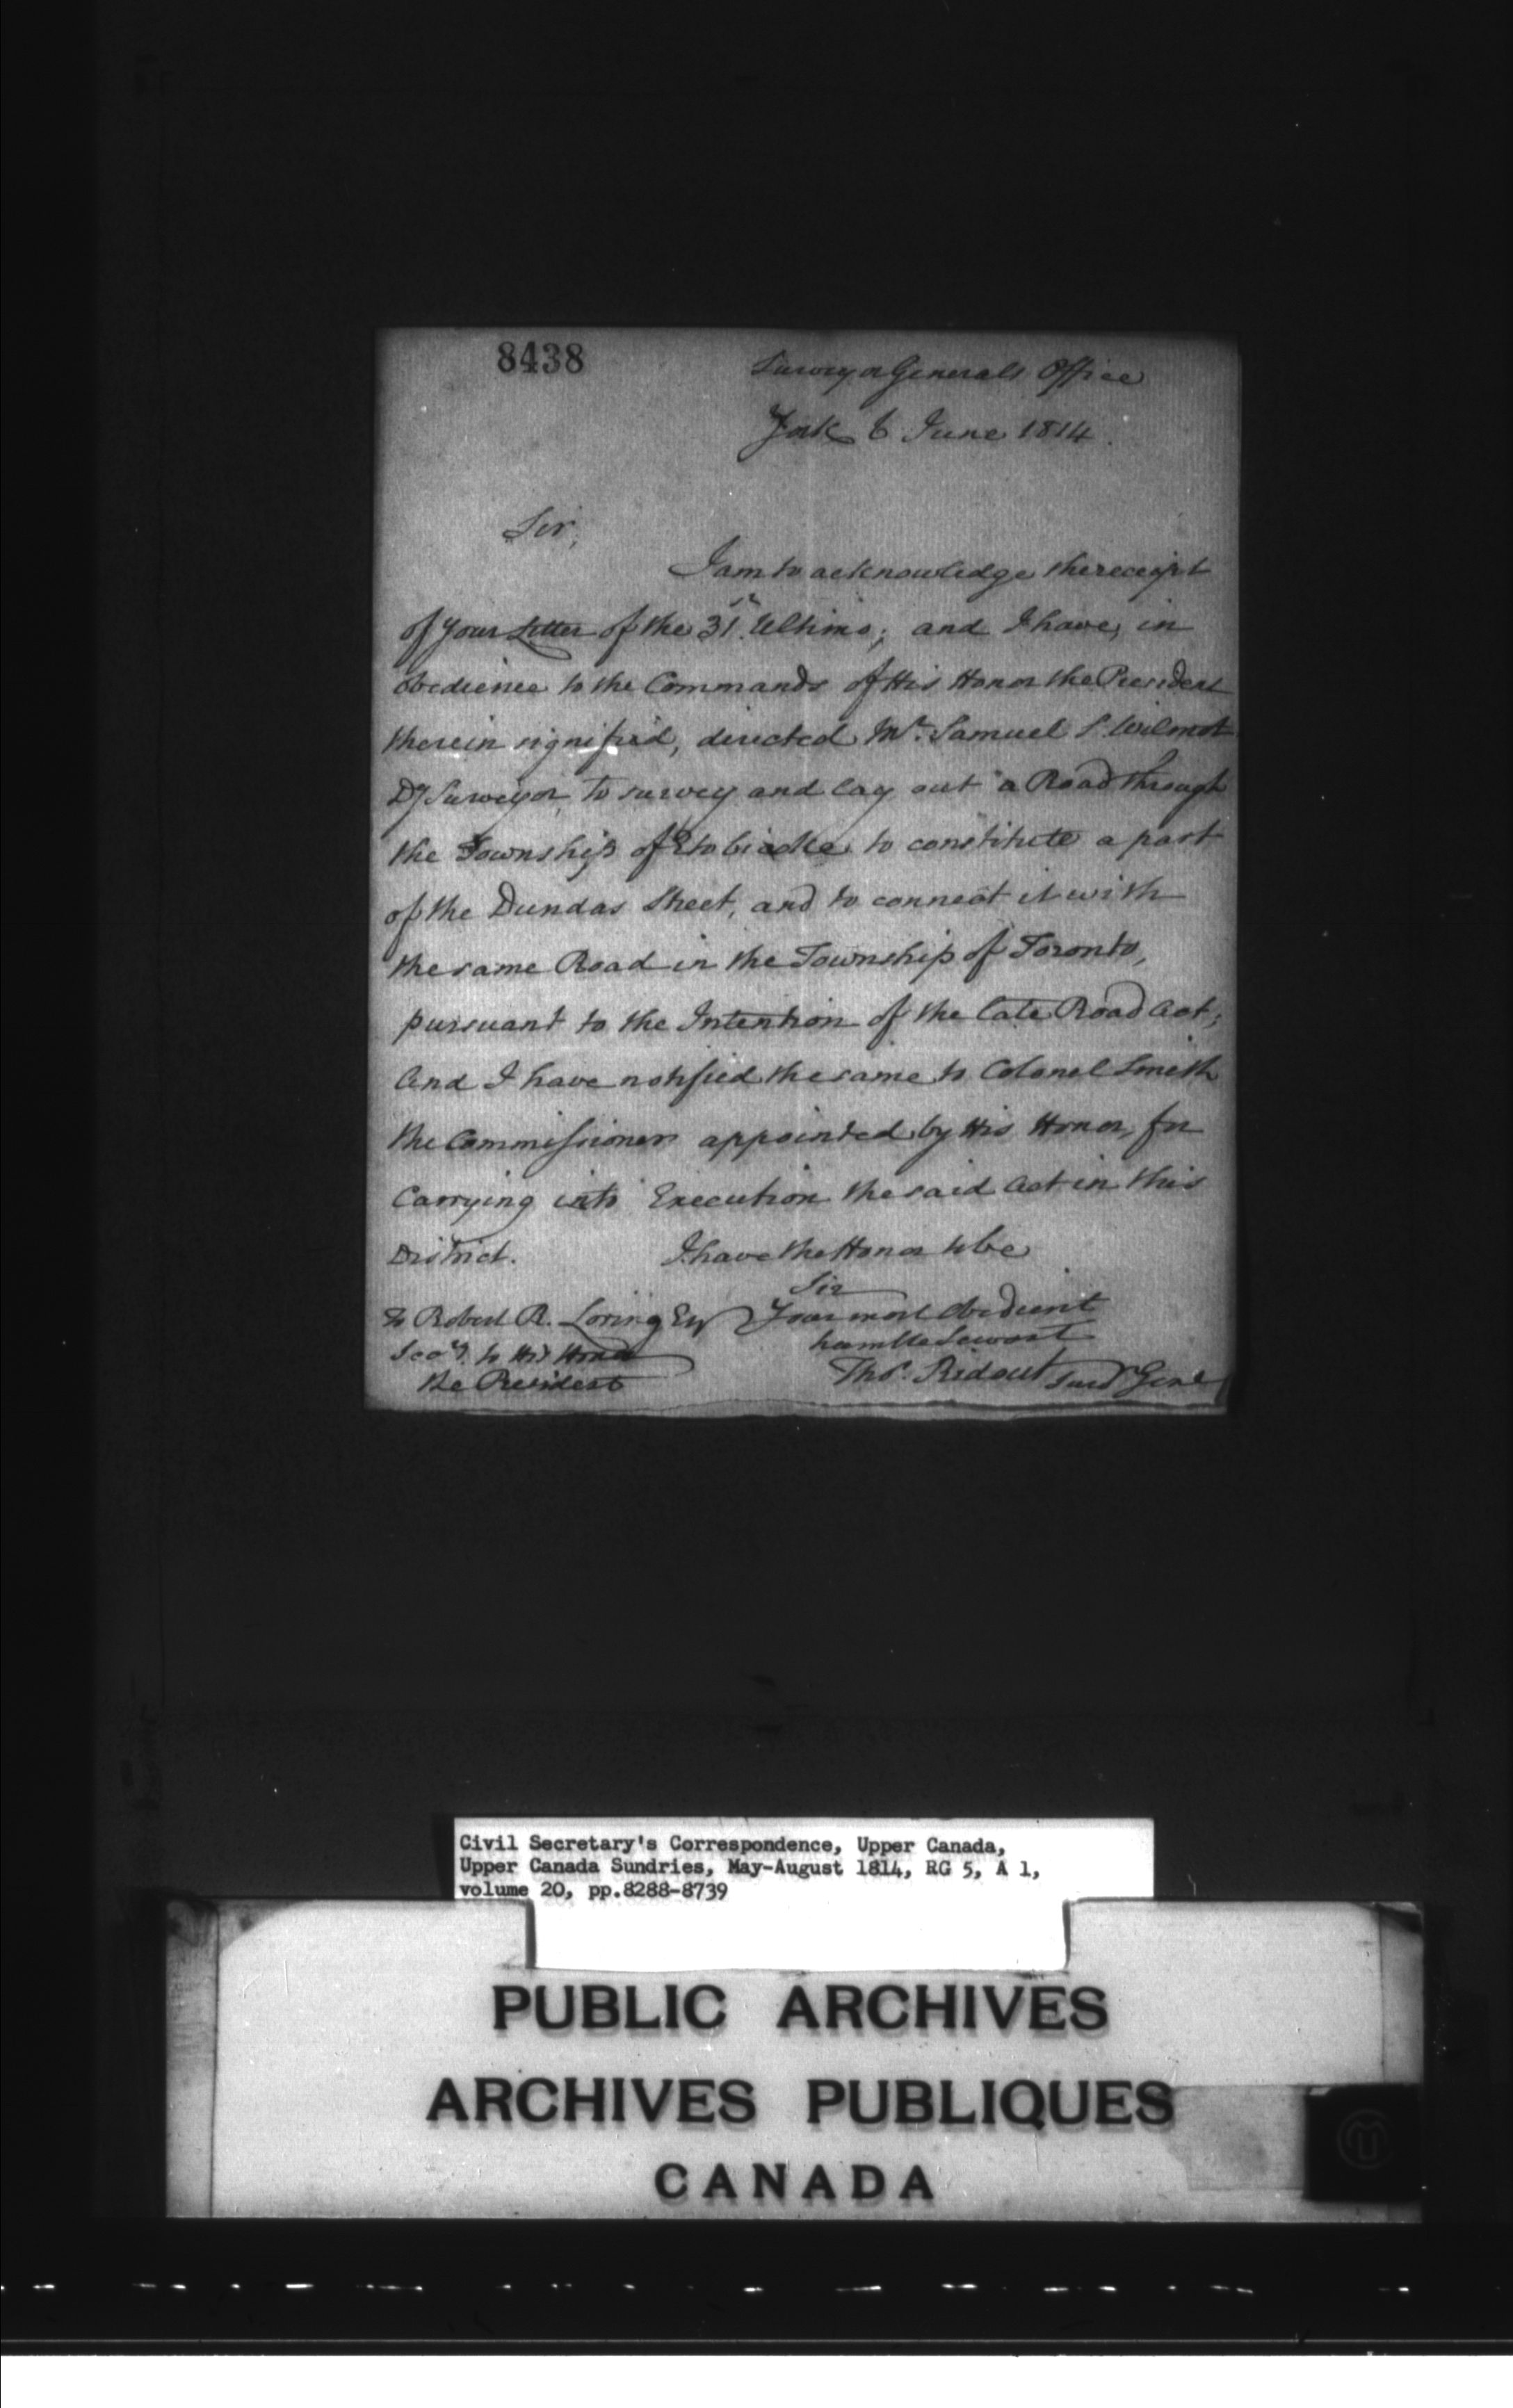 8438
Surveyor Generals Office
York 6 June 1814.
Sir,
I am to acknowledge the receipt
of your Letter of the 31st. Ultimo; and I have, in
obedience to the Commands of His Honor the President
therein signified, directed Mr. Samuel S. Wilmot
Dy Surveyor, to survey and lay out a Road through
the Township of Etobicoke to constitute a part
of the Dundas Street, and to connect it with
the same Road in the Township of Toronto,
pursuant to the Intention of the late Road Act;
And I have notified the same to Colonel Smith
the Commissioner appointed by His Honor, for
Carrying into Execution the said Act in this
District. I have the Honor to be
Sir
To Robert R. Loring Esqr Your most obedient
humble Servant
Secy. to His Honor
the President
Thos. Ridout Survr Genl
Civil Secretary's Correspondence, Upper Canada,
Upper Canada Sundries, May-August 1814, RG 5, A 1,
volume 20, pp.8288-8739
PUBLIC ARCHIVES
ARCHIVES PUBLIQUES
CANADA